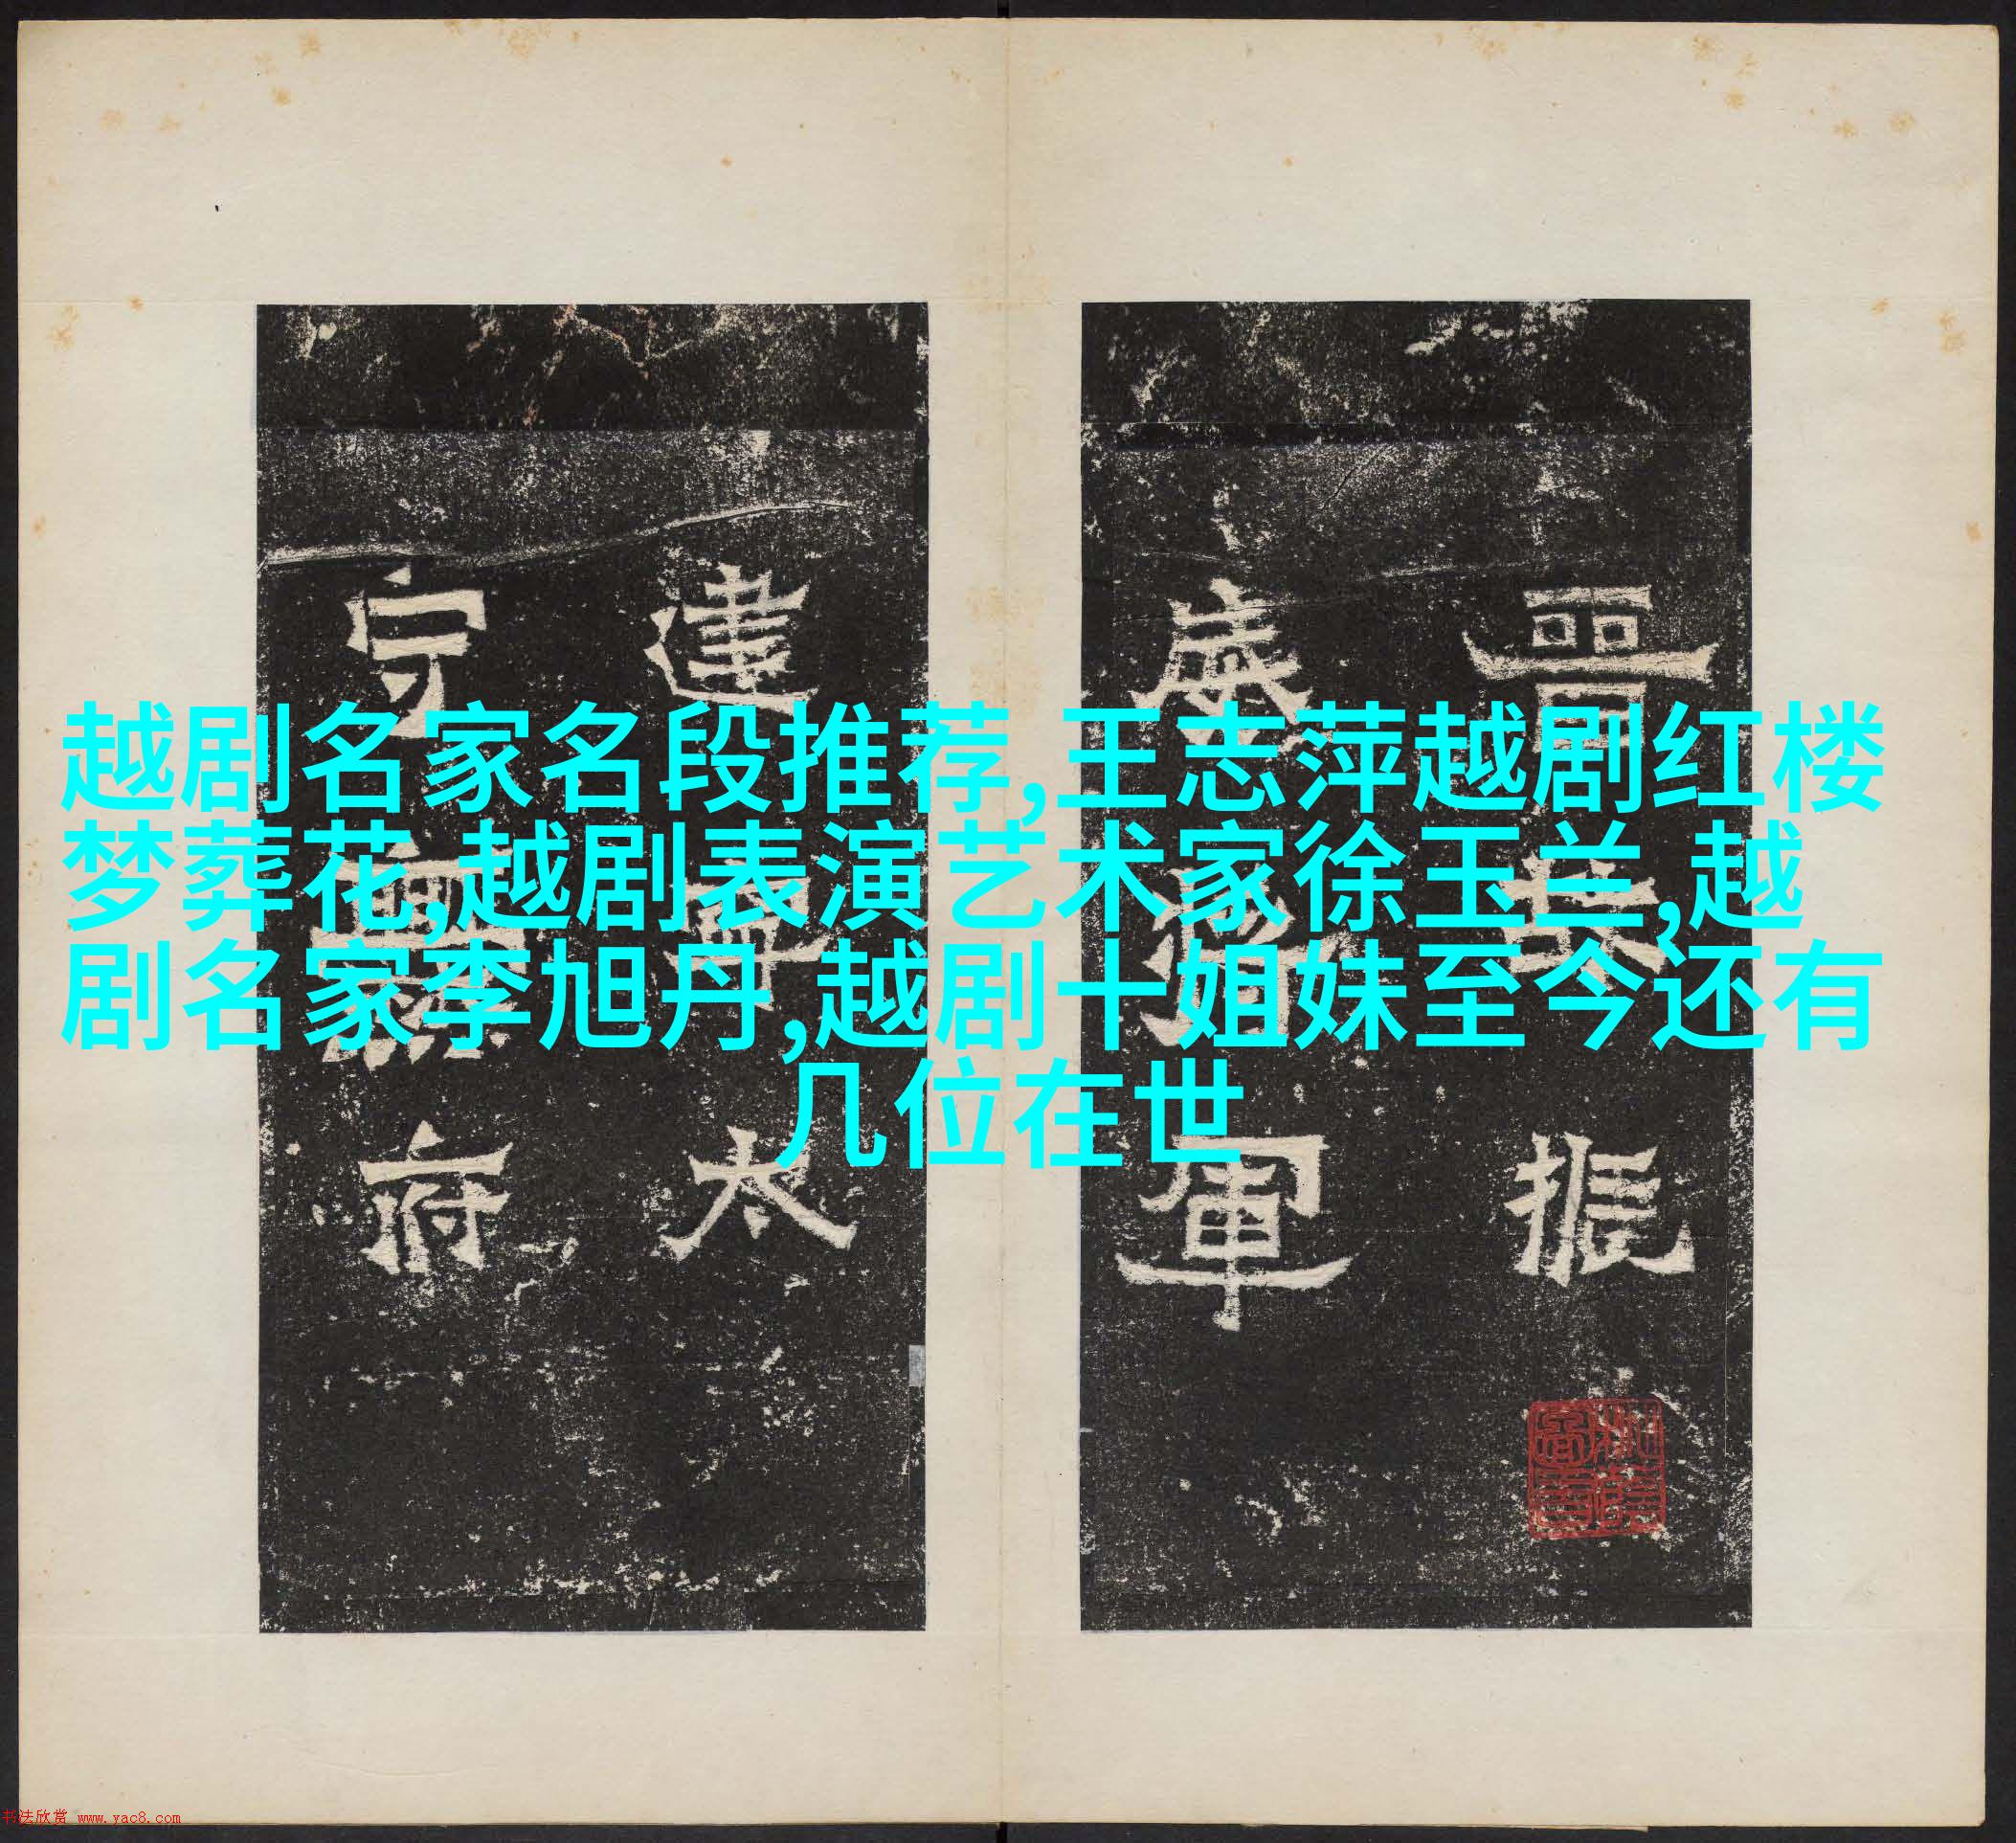 越剧名家名段推荐,王志萍越剧红楼
梦葬花,越剧表演艺术家徐玉兰,越
剧名家李旭丹,越剧十姐妹至今还有
几位在世
晉故振
威將軍
建寧太
守爨府
书法欣赏 www.yac8.com